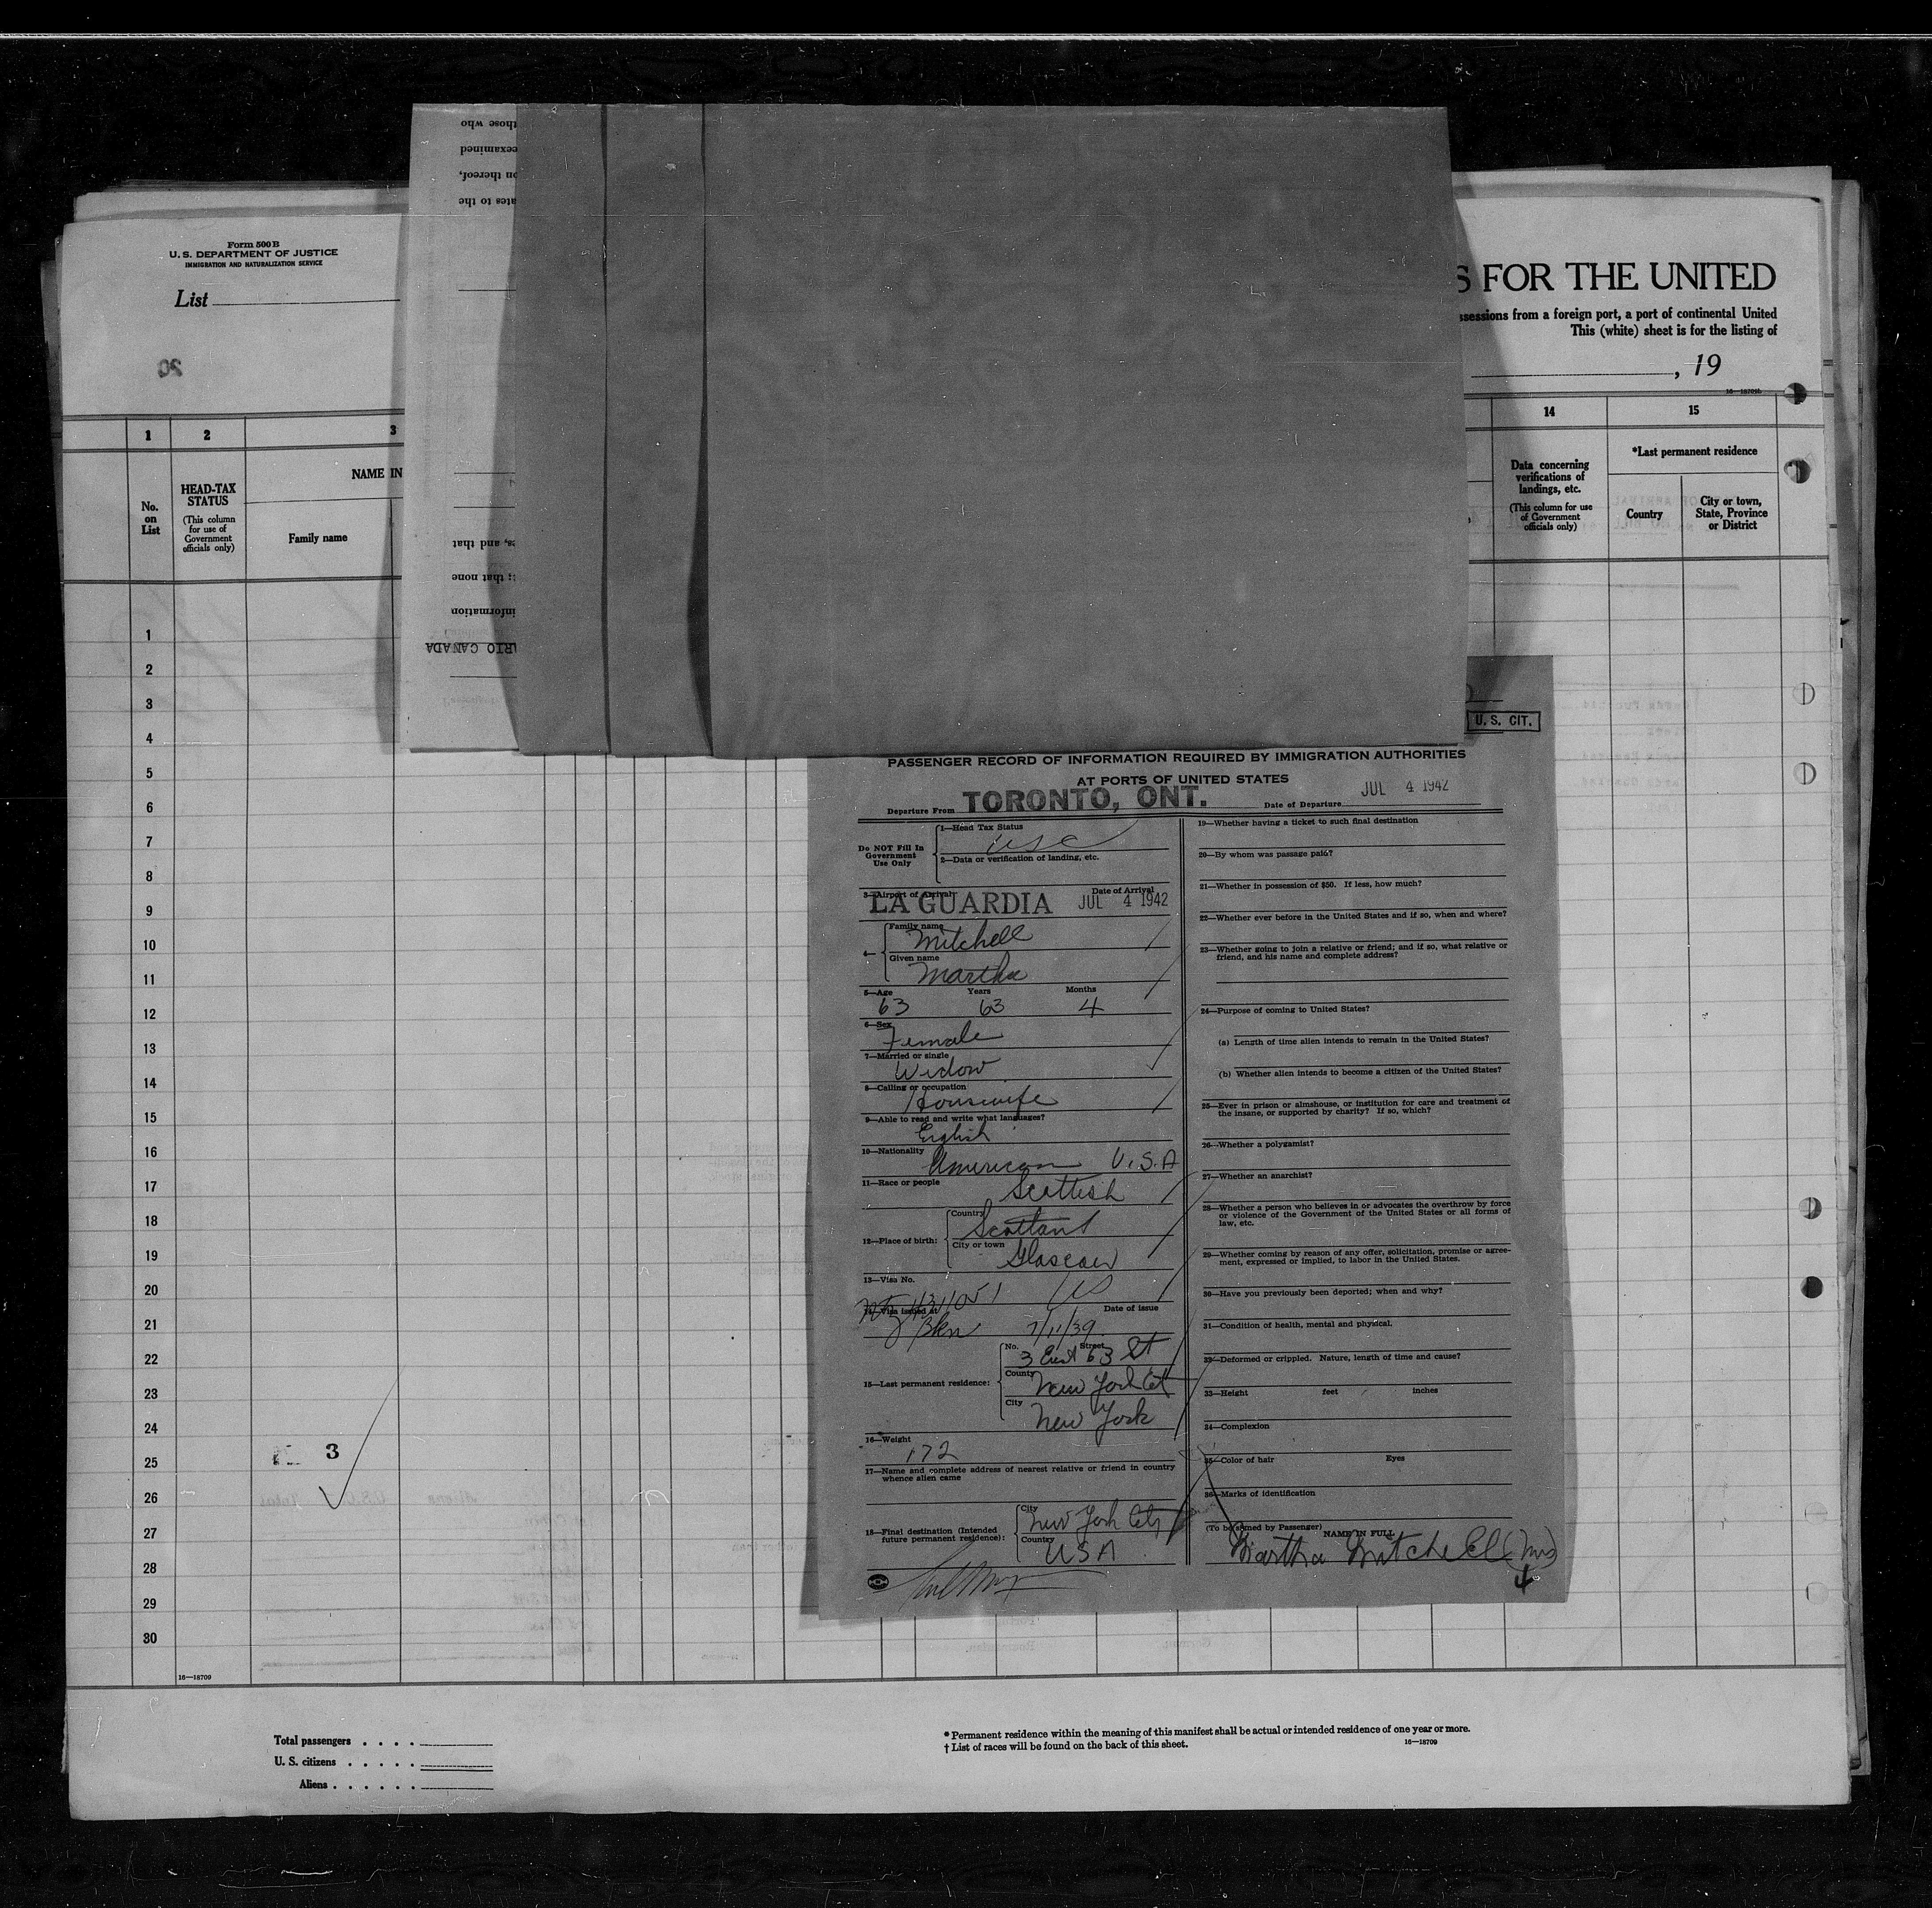 those who
eexamined
on thereof,
ates to the
Form 500 B
U. S. DEPARTMENT OF JUSTICE
IMMIGRATION AND NATURALIZATION SERVICE
List
20
S FOR THE UNITED
ssessions from a foreign port, a port of continental United
This (white) sheet is for the listing of
, 19
1 2 3 14 15
No. on List
HEAD-TAX STATUS
(This column for use of Government officials only)
NAME IN
Family name
Data concerning verifications of landings, etc.
(This column for use of Government officials only)
*Last permanent residence
Country
City or town, State, Province or District
s, and that
; that none
information
RIO CANADA
1
2
3
4
5
6
7
8
9
10
11
12
13
14
15
16
17
18
19
20
21
22
23
24
25
26
27
28
29
30
3
16—18709
U. S. CIT.
PASSENGER RECORD OF INFORMATION REQUIRED BY IMMIGRATION AUTHORITIES
AT PORTS OF UNITED STATES
Departure From TORONTO, ONT. Date of Departure JUL 4 1942
Do NOT Fill In Government Use Only
1—Head Tax Status
USC
2—Data or verification of landing, etc.
3—Airport of Arrival Date of Arrival
LA GUARDIA JUL 4 1942
4—
Family name
Mitchell
Given name
Martha
5—Age Years Months
63 63 4
6—Sex
Female
7—Married or single
Widow
8—Calling or occupation
Housewife
9—Able to read and write what languages?
English
10—Nationality
American U.S.A
11—Race or people
Scottish
12—Place of birth:
Country
Scotland
City or town
Glascow
13—Visa No.
14—Visa issued at Date of issue
Bkn 7/11/39
15—Last permanent residence:
No. Street
3 East 63 St
County
New York Ct
City
New York
16—Weight
172
17—Name and complete address of nearest relative or friend in country
whence alien came
18—Final destination (Intended
future permanent residence):
City
New York City
Country
USA
19—Whether having a ticket to such final destination
20—By whom was passage paid?
21—Whether in possession of $50. If less, how much?
22—Whether ever before in the United States and if so, when and where?
23—Whether going to join a relative or friend; and if so, what relative or
friend, and his name and complete address?
24—Purpose of coming to United States?
(a) Length of time alien intends to remain in the United States?
(b) Whether alien intends to become a citizen of the United States?
25—Ever in prison or almshouse, or institution for care and treatment of
the insane, or supported by charity? If so, which?
26—Whether a polygamist?
27—Whether an anarchist?
28—Whether a person who believes in or advocates the overthrow by force
or violence of the Government of the United States or all forms of
law, etc.
29—Whether coming by reason of any offer, solicitation, promise or agree-
ment, expressed or implied, to labor in the United States.
30—Have you previously been deported; when and why?
31—Condition of health, mental and physical.
32—Deformed or crippled. Nature, length of time and cause?
33—Height feet inches
34—Complexion
35—Color of hair Eyes
36—Marks of identification
(To be signed by Passenger)
NAME IN FULL
Martha Mitchell (Mrs)
4
Total passengers . . . .
U. S. citizens . . . . .
Aliens . . . . . .
* Permanent residence within the meaning of this manifest shall be actual or intended residence of one year or more.
† List of races will be found on the back of this sheet.
16—18709